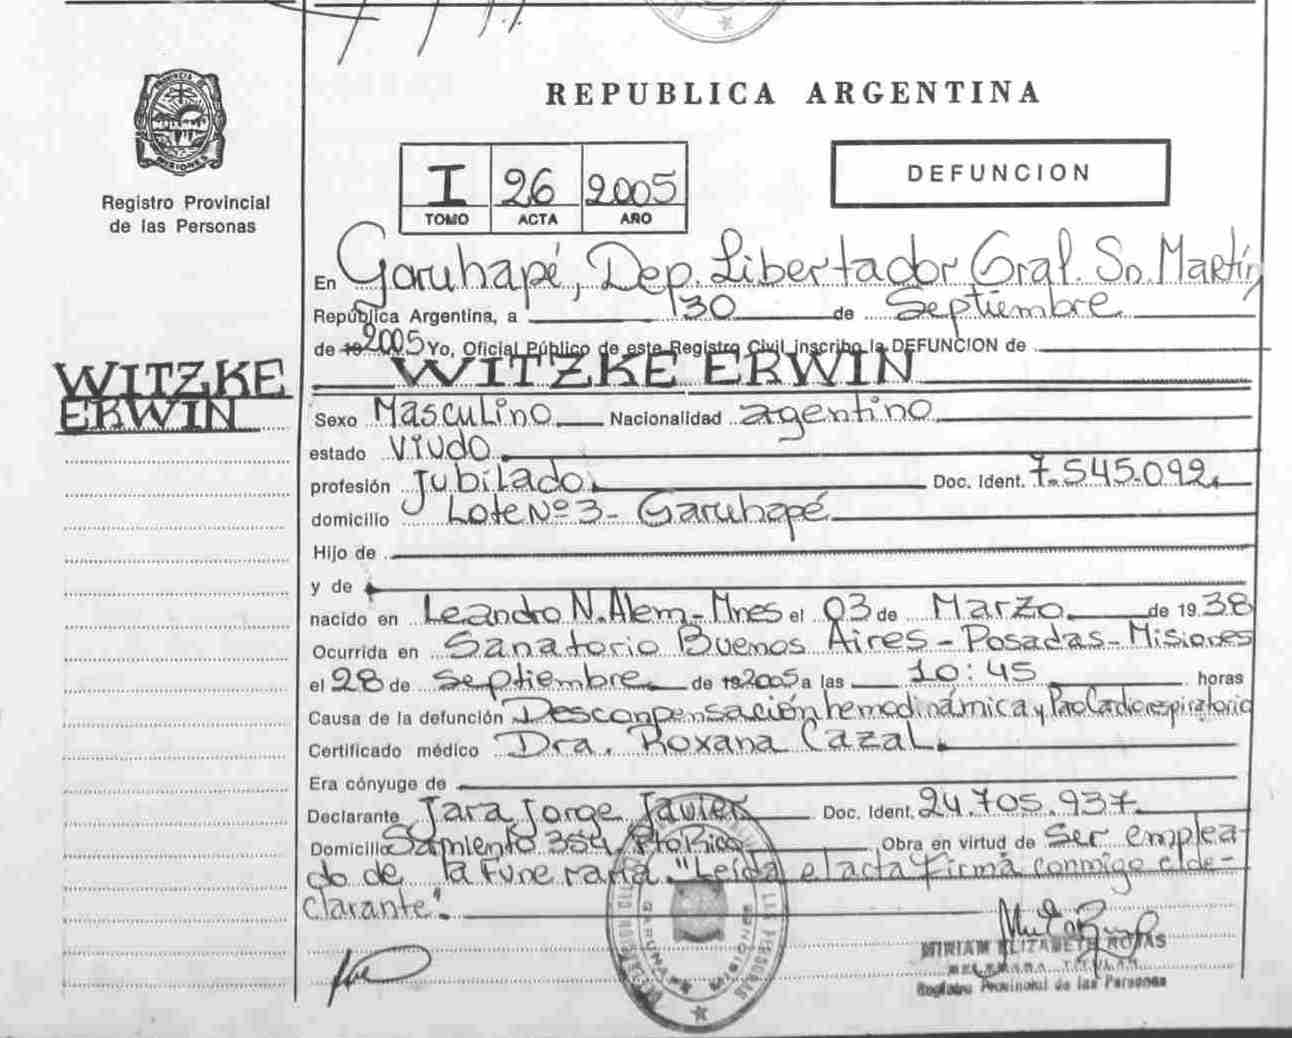 PROVINCIA DE
MISIONES
Registro Provincial
de las Personas
REPUBLICA ARGENTINA
I 26 2005
TOMO ACTA AÑO
DEFUNCION
En Garuhapé, Dep. Libertador Gral. Sn. Martín
República Argentina, a 30 de Septiembre
de 19 2005 Yo, Oficial Público de este Registro Civil inscribo la DEFUNCION de
WITZKE ERWIN
WITZKE
ERWIN
Sexo Masculino Nacionalidad agentino
estado Viudo
profesión Jubilado. Doc. Ident. 7.545.092.
domicilio Lote Nº 3- Garuhapé
Hijo de
y de
nacido en Leandro N. Alem- Mnes el 03 de Marzo de 19 38
Ocurrida en Sanatorio Buenos Aires - Posadas - Misiones
el 28 de Septiembre de 19 2005 a las 10:45 horas
Causa de la defunción Desconpensación hemodinámica y Paro Cardiorespiratorio
Certificado médico Dra. Roxana Cazal.
Era cónyuge de
Declarante Jara Jorge Javier Doc. Ident. 24.705.937.
Domicilio Sarmiento 354. Pto Rico Obra en virtud de Ser emplea-
do de la Fune raria. "Leída el acta firma conmigo el de-
clarante".
GARUHAPE MISIONES
MIRIAM ELIZABETH ROJAS
TITULAR
Registro Provincial de las Personas